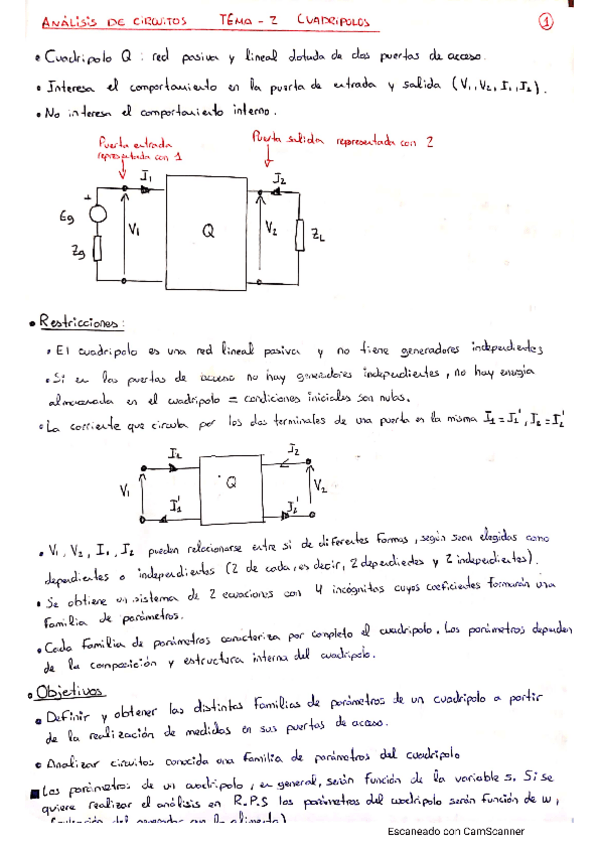 ANÁLISIS DE CIRCUITOS TEMA - 2 CUADRIPOLOS 1
• Cuadripolo Q : red pasiva y lineal dotada de dos puertas de acceso.
• Interesa el comportamiento en la puerta de entrada y salida (V1, V2, I1, I2).
• No interesa el comportamiento interno.
Puerta entrada
representada con 1
Puerta salida representada con 2
I1
I2
+
Eg
Zg
V1
Q
V2
ZL
• Restricciones:
• El cuadripolo es una red lineal pasiva y no tiene generadores independientes
• Si en las puertas de acceso no hay generadores independientes, no hay energía
almacenada en el cuadripolo = condiciones iniciales son nulas.
• La corriente que circula por los dos terminales de una puerta es la misma I1 = I1', I2 = I2'
I1
I2
V1
Q
V2
I1'
I2'
• V1, V2, I1, I2 pueden relacionarse entre si de diferentes formas, según sean elegidas como
dependientes o independientes (2 de cada, es decir, 2 dependientes y 2 independientes).
• Se obtiene un sistema de 2 ecuaciones con 4 incógnitas cuyos coeficientes formarán una
familia de parámetros.
• Cada familia de parámetros caracteriza por completo el cuadripolo. Los parámetros dependen
de la composición y estructura interna del cuadripolo.
• Objetivos
• Definir y obtener las distintas familias de parámetros de un cuadripolo a partir
de la realización de medidas en sus puertas de acceso.
• Analizar circuitos conocida una familia de parámetros del cuadripolo
■ Los parámetros de un cuadripolo, en general, serán función de la variable s. Si se
quiere realizar el análisis en R.P.S los parámetros del cuadripolo serán función de w,
Escaneado con CamScanner